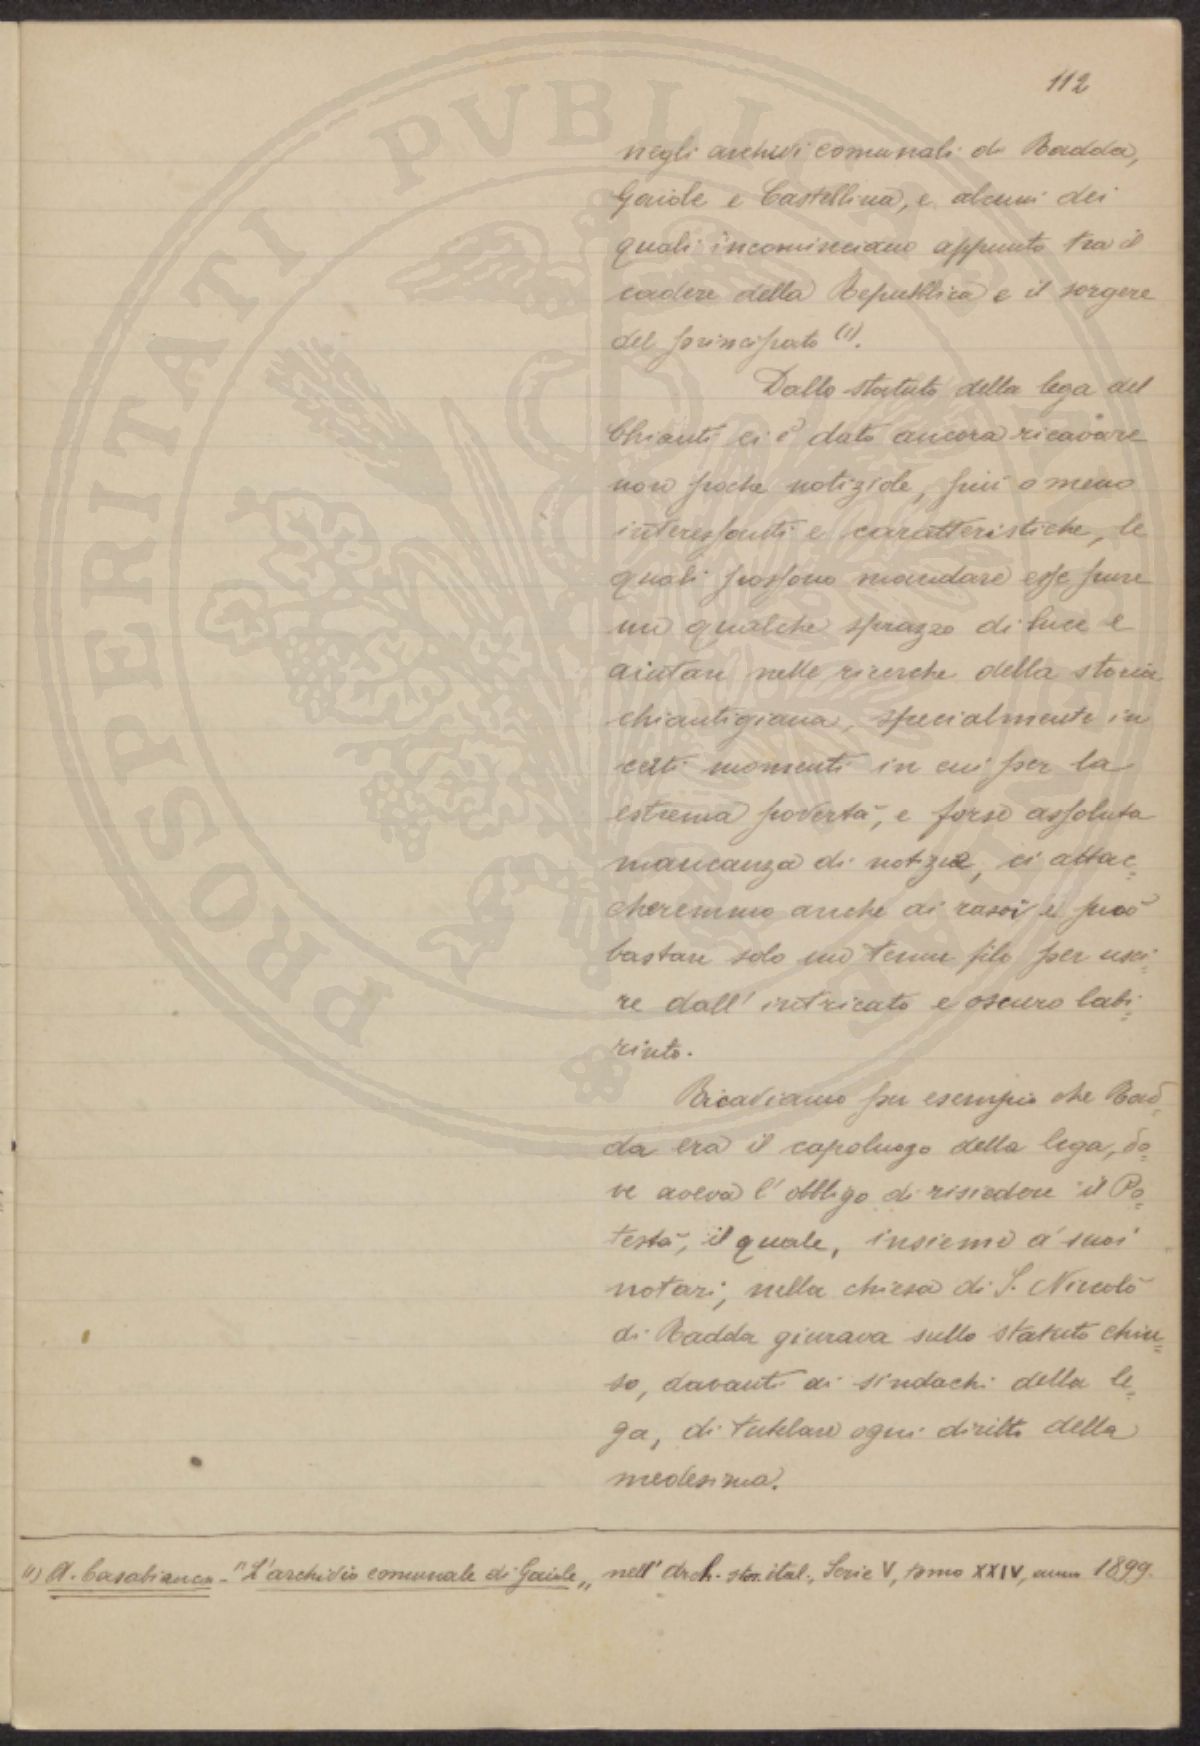 112
negli archivi comunali di Radda,
Gaiole e Castellina, e alcuni dei
quali incominciano appunto tra il
cadere della Repubblica e il sorgere
del principato (1).
Dallo statuto della lega del
Chianti ci è dato ancora ricavare
non poche notizie, più o meno
interessanti e caratteristiche, le
quali possono mandare esse pure
un qualche sprazzo di luce e
aiutare nelle ricerche della storia
chiantigiana, specialmente in
certi momenti in cui per la
estrema povertà, e forse assoluta
mancanza di notizie, ci attac=
cheremmo anche ai rasoi e può
bastare solo un tenue filo per usci=
re dall' intricato e oscuro labi=
rinto.
Ricaviamo per esempio che Rad=
da era il capoluogo della lega, do=
ve aveva l' obbligo di risiedere il Po=
testà, il quale, insieme a' suoi
notari, nella chiesa di S. Niccolò
di Radda giurava sullo statuto chiu=
so, davanti ai sindachi della le=
ga, di tutelare ogni diritto della
medesima.
(1) A. Casabianca - "L'archivio comunale di Gaiole„ nell' Arch. stor. ital., Serie V, tomo XXIV, anno 1899.
PROSPERITATI PVBLICAE